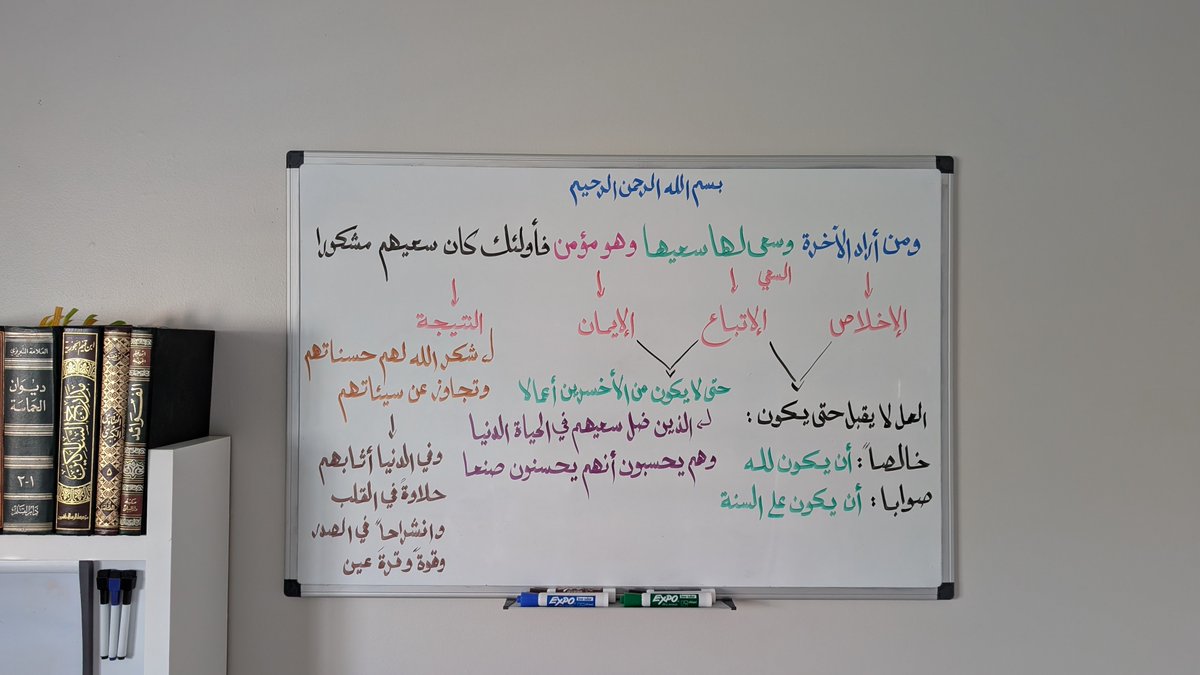 بسم الله الرحمن الرحيم
ومن أراد الآخرة وسعى لها سعيها وهو مؤمن فأولئك كان سعيهم مشكورا
السعي
الإخلاص
الإتباع
الإيمان
النتيجة
العمل لا يقبل حتى يكون :
خالصاً : أن يكون لله
صوابا : أن يكون على السنة
حتى لا يكون من الأخسرين أعمالا
الذين ضل سعيهم في الحياة الدنيا
وهم يحسبون أنهم يحسنون صنعا
شكر الله لهم حسناتهم
وتجاوز عن سيئاتهم
وفي الدنيا أثابهم
حلاوةً في القلب
وانشراحاً في الصدر
وقوةً وقرةَ عين
ديوان
الحماسة
١-٢
مدارج السالكين
٥
EXPO
EXPO